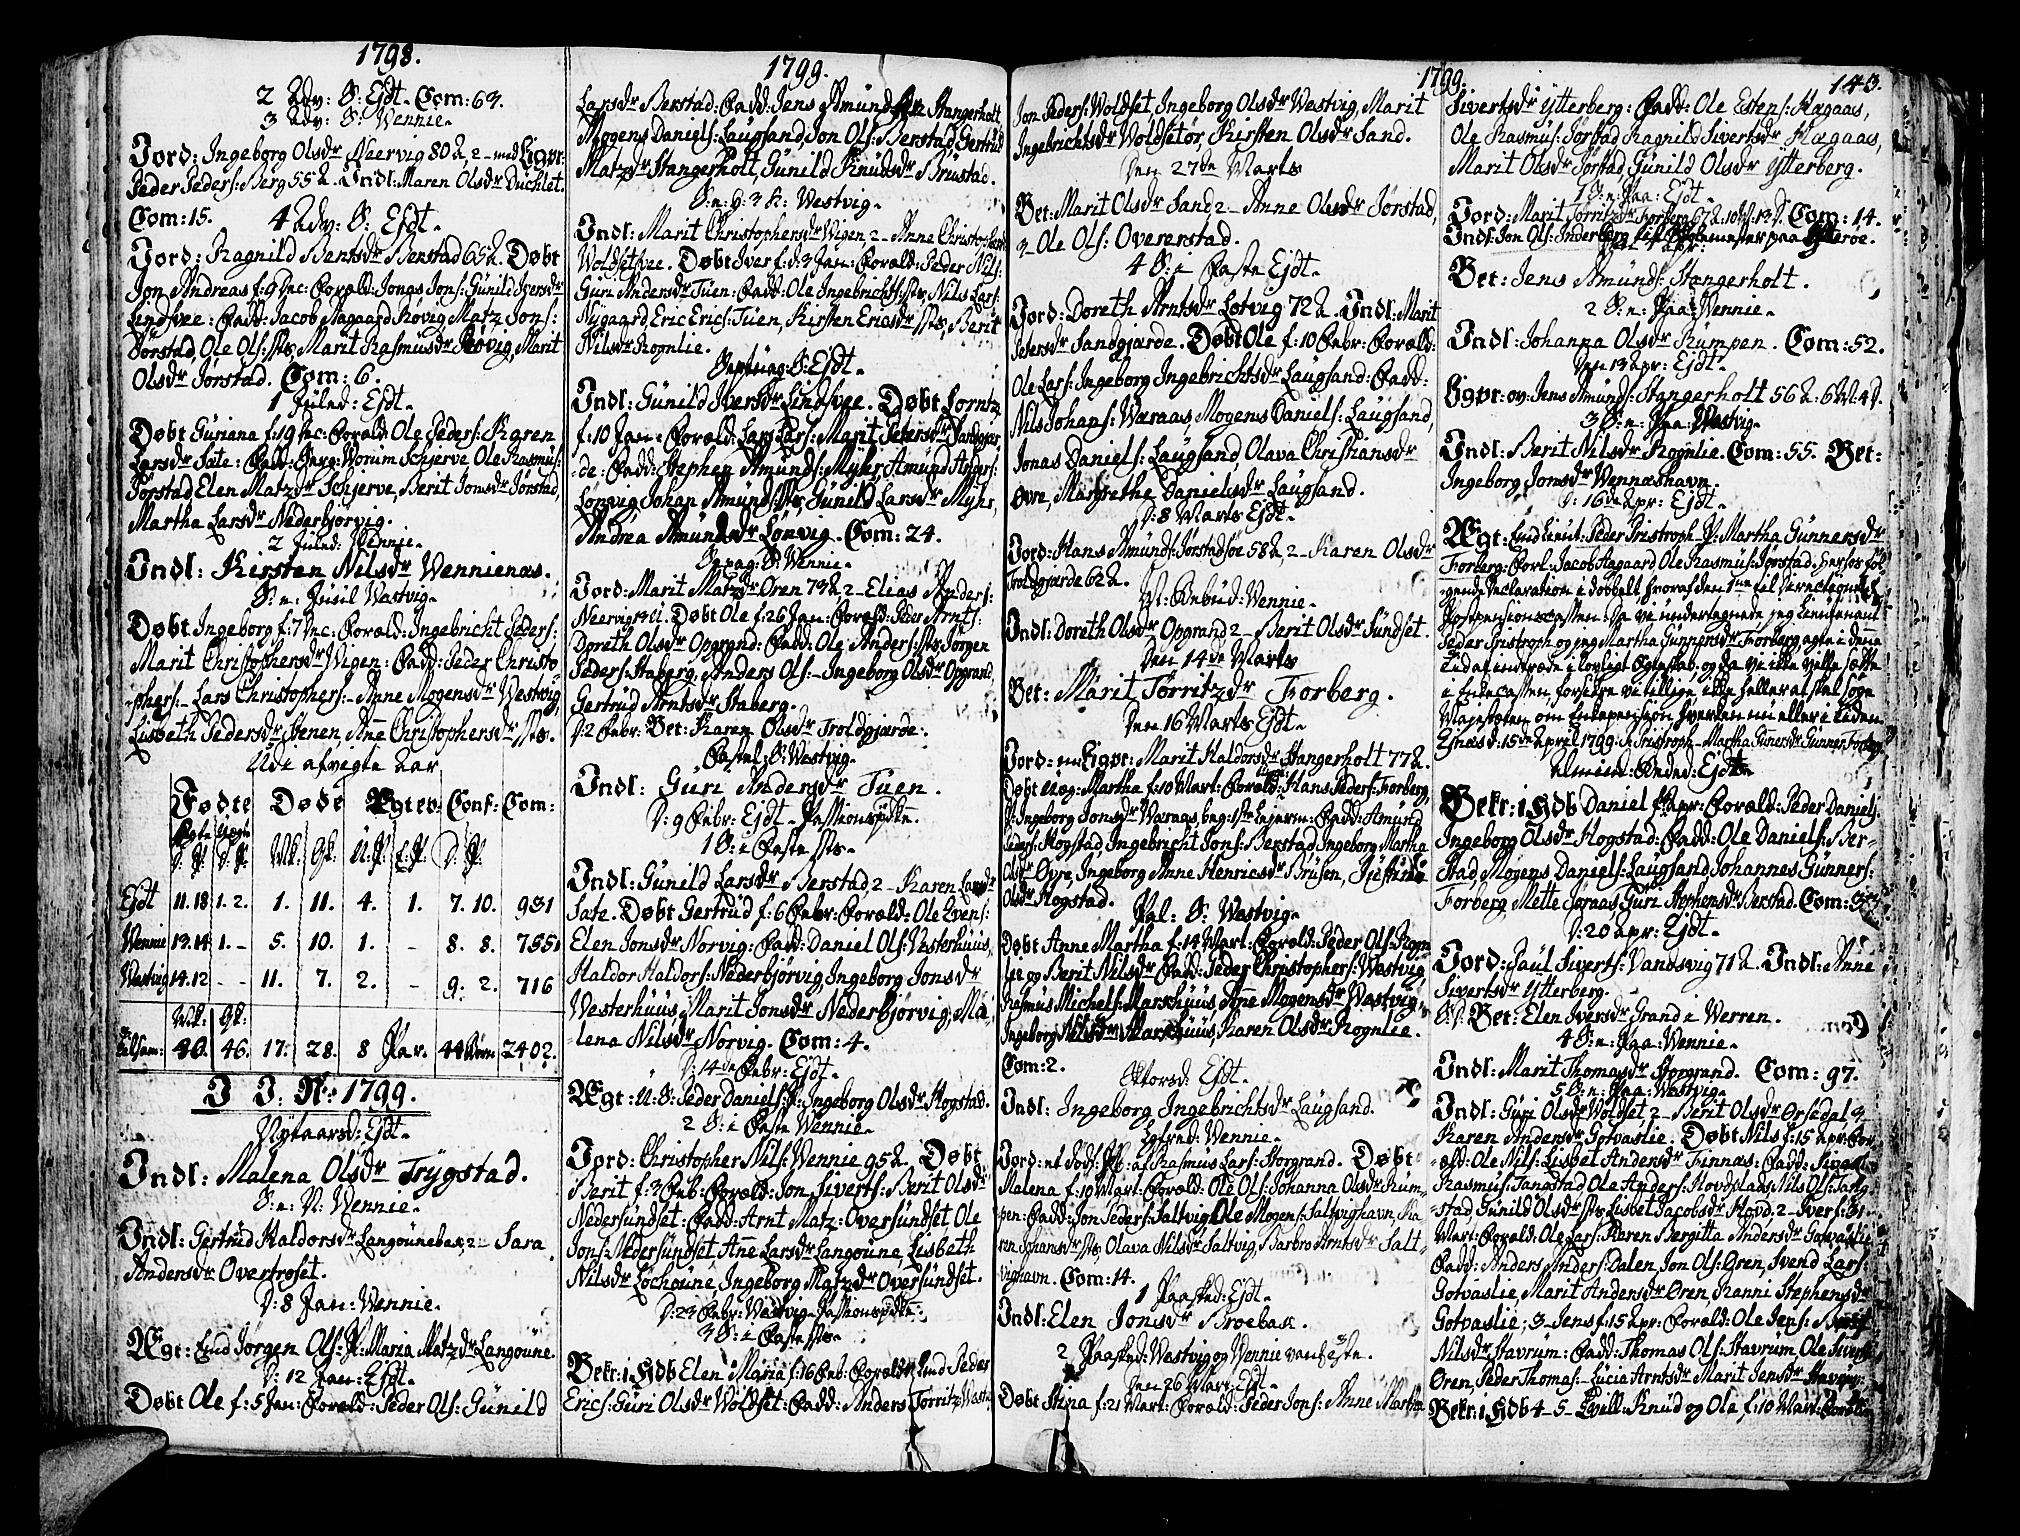 1798.
2 Adv: S: Ejdt. Com: 63.
3 Adv: S: Wennie.
Jord: Ingeborg Olsdr Neervig 80 2 - med Ligpr:
Peder Peders: Berg 55 Indl: Maren Olsdr
Com: 15. 4 Adv: S: Ejdt.
Jord: Ragnild Bentsdr Berstad 65 Døbt
Jon Andreas f: 9 Dec: Foræld: Jonas Jons: Günild Iversdr
Lindsvee: Fadd: Jacob Aagaard Røvig Matz Jons:
Jørstad, Ole Ols: Marit Rasmusdr Røvig, Marit
Olsdr Jørstad. Com: 6.
1 Juled: Ejdt.
Døbt Guriana f: 19 Dec: Foræld: Ole Peders: Karen
Larsdr Sate: Fadd: Schjerve Ole Rasmus:
Jørstad, Elen Matzdr Schjerve, Berit Jonsdr Jørstad,
Martha Larsdr Nederbjørvig.
2 Juled: Wennie.
Indl: Kirsten Nilsdr Wennienæs.
S: n: Juul Wastvig.
Døbt Ingeborg f: 7 Dec: Foræld: Ingebricht Peders:
Marit Christophersdr Wigen: Fadd: Peder Christo
phers: Lars Christophers: Anne Mogensdr Westvig,
Lisbeth Pedersdr Stenen, Anne Christophersdr
Udi afvigte Aar
Fødte Døde Egtev: Conf: Com:
Ejdt 11. 18 1. 2. 1. 11. 4. 1. 7. 10. 931
Wennie 13. 14 1. - 5. 10. 1. - 8. 8. 755
Wastvig 14. 12 - - 11. 7. 2. - 9. 2. 716
46. 17. 28. 8 Par. 44 Børn 2402.
I J. N: 1799.
Nytaarsd: Ejdt.
Indl: Malena Olsdr Trygstad.
S: n: N: Wennie.
Indl: Gertrud Haldorsdr Langounebæk, 2 - Sara
Andersdr Overtroset.
D: 8 Jan: Wennie.
Egt: Jørgen Ols: P: Maria Matzdr Langoune.
D: 12 Jan: Ejdt.
Døbt Ole f: 5 Jan: Foræld: Peder Ols: Günild
1799.
Larsdr Berstad: Fadd: Jens Amunds: Stangerholt
Mogens Daniels: Laugsand, Jon Ols: Berstad, Gertrud
Matzdr Stangerholt, Günild Knudsdr Brustad.
S: n: H: 3 K: Westvig.
Indl: Marit Christophersdr Wigen, 2 - Anne Christophersdr
Woldsetvee. Døbt Iver f: d: 3 Jan: Foræld: Peder Nils:
Guri Andersdr Tuen: Fadd: Ole Ingebrichts: Nils Lars:
Nygaard, Eric Erics: Tuen, Kirsten Ericsdr Berit
Nilsdr Rognlie.
Septuag: S: Ejdt.
Indl: Günild Iversdr Lindsvee. Døbt Lorntz
f: 10 Jan: Foræld: Lars Lars: Marit Petersdr Sandgjær
de: Fadd: Stephen Amunds: Myhr, Amund Anders:
Lønvig, Johan Amunds: Günild Larsdr Myhr,
Andrea Amundsdr Lønvig. Com: 24.
Sexag: S: Wennie.
Jord: Marit Matzdr Øren 73 2 - Elias Anders:
Neervig Døbt Ole f: 26 Jan: Foræld: Peder Arnts:
Doreth Olsdr Opgrand: Fadd: Ole Anders: Jørgen
Peders: Staberg, Anders Ols: Ingeborg Olsdr Opgrand
Gertrud Arntsdr Staberg.
D: 2 Febr: Bet: Karen Olsdr Troldgjærde.
Fastel: S: Westvig.
Indl: Guri Andersdr Tuen.
D: 9 Febr: Ejdt. Passionspræk:
1 S: i Faste
Indl: Günild Larsdr Berstad 2 - Karen Larsdr
Sate. Døbt Gertrud f: 6 Febr: Foræld: Ole Evens:
Elen Jonsdr Norvig: Fadd: Daniel Ols: Westerhuus,
Haldor Haldors: Nederbjørvig, Ingeborg Jonsdr
Westerhuus, Marit Jonsdr Nederbjørvig, Ma
lena Nilsdr Norvig. Com: 4.
D: 14de Febr: Ejdt.
Egt: U: S: Peder Daniels: P: Ingeborg Olsdr Rogstad.
2 S: i Faste Wennie.
Jord: Christopher Nils: Wennie 95 Døbt
Berit f: 2 Feb: Foræld: Jon Siverts: Berit Olsdr
Nedersundset: Fadd: Arnt Matz: Oversundset Ole
Jons: Nedersundset, Anne Larsdr Langoune, Lisbeth
Nilsdr Lochoune, Ingeborg Matzdr Oversundset.
D: 23 Febr: Westvig Passionspræk:
3 S: i Faste
Bekr: i Hdb Elen Maria f: 16 Feb: Foræld: Peder
Erics: Guri Olsdr Woldset: Fadd: Anders Torritz
1799
Jon Peders: Woldset Ingeborg Olsdr Wastvig, Marit
Ingebrichtsdr Woldsetør, Kirsten Olsdr Sand.
Den 27de Marts
Bet: Marit Olsdr Sand, 2 - Anne Olsdr Jørstad,
3 - Ole Ols: Overerstad.
4 S: i Faste Ejdt.
Jord: Doreth Arntsdr Lotvig 72 Indl: Marit
Petersdr Sandgjærde. Døbt Ole f: 10 Febr: Foræld:
Ole Lars: Ingeborg Ingebrichtsdr Laugsand: Fadd:
Nils Johans: Wæraas, Mogens Daniels: Laugsand,
Jonas Daniels: Laugsand, Olava Christiansdr
Øvre, Margrethe Danielsdr Laugsand.
D: 8 Marts Ejdt.
Jord: Hans Amunds: Jørstadsøe 58 2 - Karen Olsdr
Troldgjærde 62
M: Bebud: Wennie.
Indl: Doreth Olsdr Opgrand 2 - Berit Olsdr Sundset.
Den 14de Marts
Bet: Marit Torritzdr Forberg.
Den 16 Marts Ejdt.
Jord: m: Ligpr: Marit Haldorsdr Stangerholt 77
Døbt Uæg: Martha f: 10 Mart: Foræld: Hans Peders: Forberg,
P: Ingeborg Jonsdr Wæraas, beg: 1ste Lejerm: Fadd: Amund
Peders: Rogstad, Ingebricht Jons: Berstad, Ingeborg Martha
Olsdr Øvre, Ingeborg Anne Henricsdr Brusen, Justine
Olsdr Rogstad.
Pal: S: Wastvig.
Døbt Anne Martha f: 14 Mart: Foræld: Peder Ols: Rogn
lie og Berit Nilsdr Fadd: Peder Christophers: Wastvig
Rasmus Michels: Markhuus, Anne Mogensdr Wastvig,
Ingeborg Nilsdr Markhuus, Karen Olsdr Rognlie.
Com: 2.
Skiersd: Ejdt.
Indl: Ingeborg Ingebrichtsdr Laugsand.
Lgfred: Wennie.
Jord: et dødf: Pb: af Rasmus Lars: Storgrand. Døbt
Malena f: 10 Mart: Foræld: Ole Ols: Johanna Olsdr Rum
pen: Fadd: Jon Peders: Saltvig Ole Mogens: Saltvighavn, Ka
ren Johansdr Olava Nilsdr Saltvig, Barbro Arntsdr Salt
vighavn. Com: 14.
1 Paasked: Ejdt.
Indl: Elen Jonsdr Broebak.
2 Paasked: Westvig og 3 Wennie vanheste.
Den 26 Mart: Ejdt.
Døbt Stina f: 21 Mart: Foræld: Peder Jons: Anne Martha
143.
Sivertsdr Ytterberg: Fadd: Ole Estens: Hægaas,
Ole Rasmus: Jørstad Ragnild Sivertsdr Hægaas,
Marit Olsdr Jørstad, Günild Olsdr Ytterberg.
1 S: n: Paa: Ejdt.
Jord: Marit Torritzdr Forberg 67 Com: 14.
Indl: Jon Ols: Inderberg Skolemester paa Ytterøe.
Bet: Jens Amunds: Stangerholt.
2 S: n: Paa: Wennie.
Indl: Johanna Olsdr Rumpen. Com: 52.
Den 13 Apr: Ejdt.
Ligpr: ov: Jens Amunds: Stangerholt 56
3 S: n: Paa: Wastvig.
Indl: Berit Nilsdr Rognlie. Com: 55. Bet:
Ingeborg Jonsdr Wennæshavn.
D: 16de Apr: Ejdt.
Egt: Lieut: Peder Tristroph P: Martha Gunnersdr
Forberg: Forl: Jacob Aagaard Ole Rasmus: Jørstad.
gende Declaration i dobbelt hvoraf den 1ne til
Postpensionscassen. Da vi undertegnede jeg Lieutenant
Peder Tristroph og jeg Martha Gunnersdr Forberg agte i denne
Tid at indtræde i lovligt Ægteskab, og da vi ikke ville sætte
i Enkecassen, forsikre vi tillige ikke heller at skal søge
Majestæten om Enkepension hverken nu eller i tiden
Ejnæs d: 15de April 1799. P. Tristroph - Martha Gunersdr Forberg
Ejdt.
Bekr: i Hdb Daniel Apr: Foræld: Peder Daniels:
Ingeborg Olsdr Rogstad: Fadd: Ole Daniels: Ber-
stad, Mogens Daniels: Laugsand, Johannes Gunners:
Forberg Mette Jøraas Guri Stephensdr Berstad. Com:
D: 20 Apr: Ejdt.
Jord: Paul Siverts: Vandsvig 71 Indl: Anne
Sivertsdr Ytterberg.
Bet: Elen Iversdr Grand i Werren.
4 S: n: Paa: Wennie.
Indl: Marit Thomasdr Storgrand. Com: 97.
5 S: n: Paa: Wastvig.
Indl: Guri Olsdr Woldset 2 - Berit Olsdr Ørsedal 3
Karen Andersdr Gotvaslie. Døbt Nils f: 15 Apr: For
æld: Ole Nils: Lisbet Andersdr Finnæs: Fadd:
Rasmus: Tangstad Ole Anders: Hovd, Nils Ols: Tang
stad Gunild Olsdr Lisbet Jacobsdr Hovd, 2 - Iver f: 31
Mart: Foræld: Ole Lars: Karen Bergitta Andersdr Gotvaslie
Fadd: Anders Anders: Dalen, Jon Ols: Øren, Svend Lars:
Gotvaslie, Marit Andersdr Øren, Ranni Stephensdr
Gotvaslie; 3 - Jens f: 15 Apr: Foræld: Ole Jens: Berit
Nilsdr Stavrum: Fadd: Thomas Ols: Stavrum Ole
Øren, Peder Thomas: Lucia Arntsdr Marit Jensdr
Bekr: i Hdb 4 - 5 - Tvill: Knud og Ole f: 10 Mart: